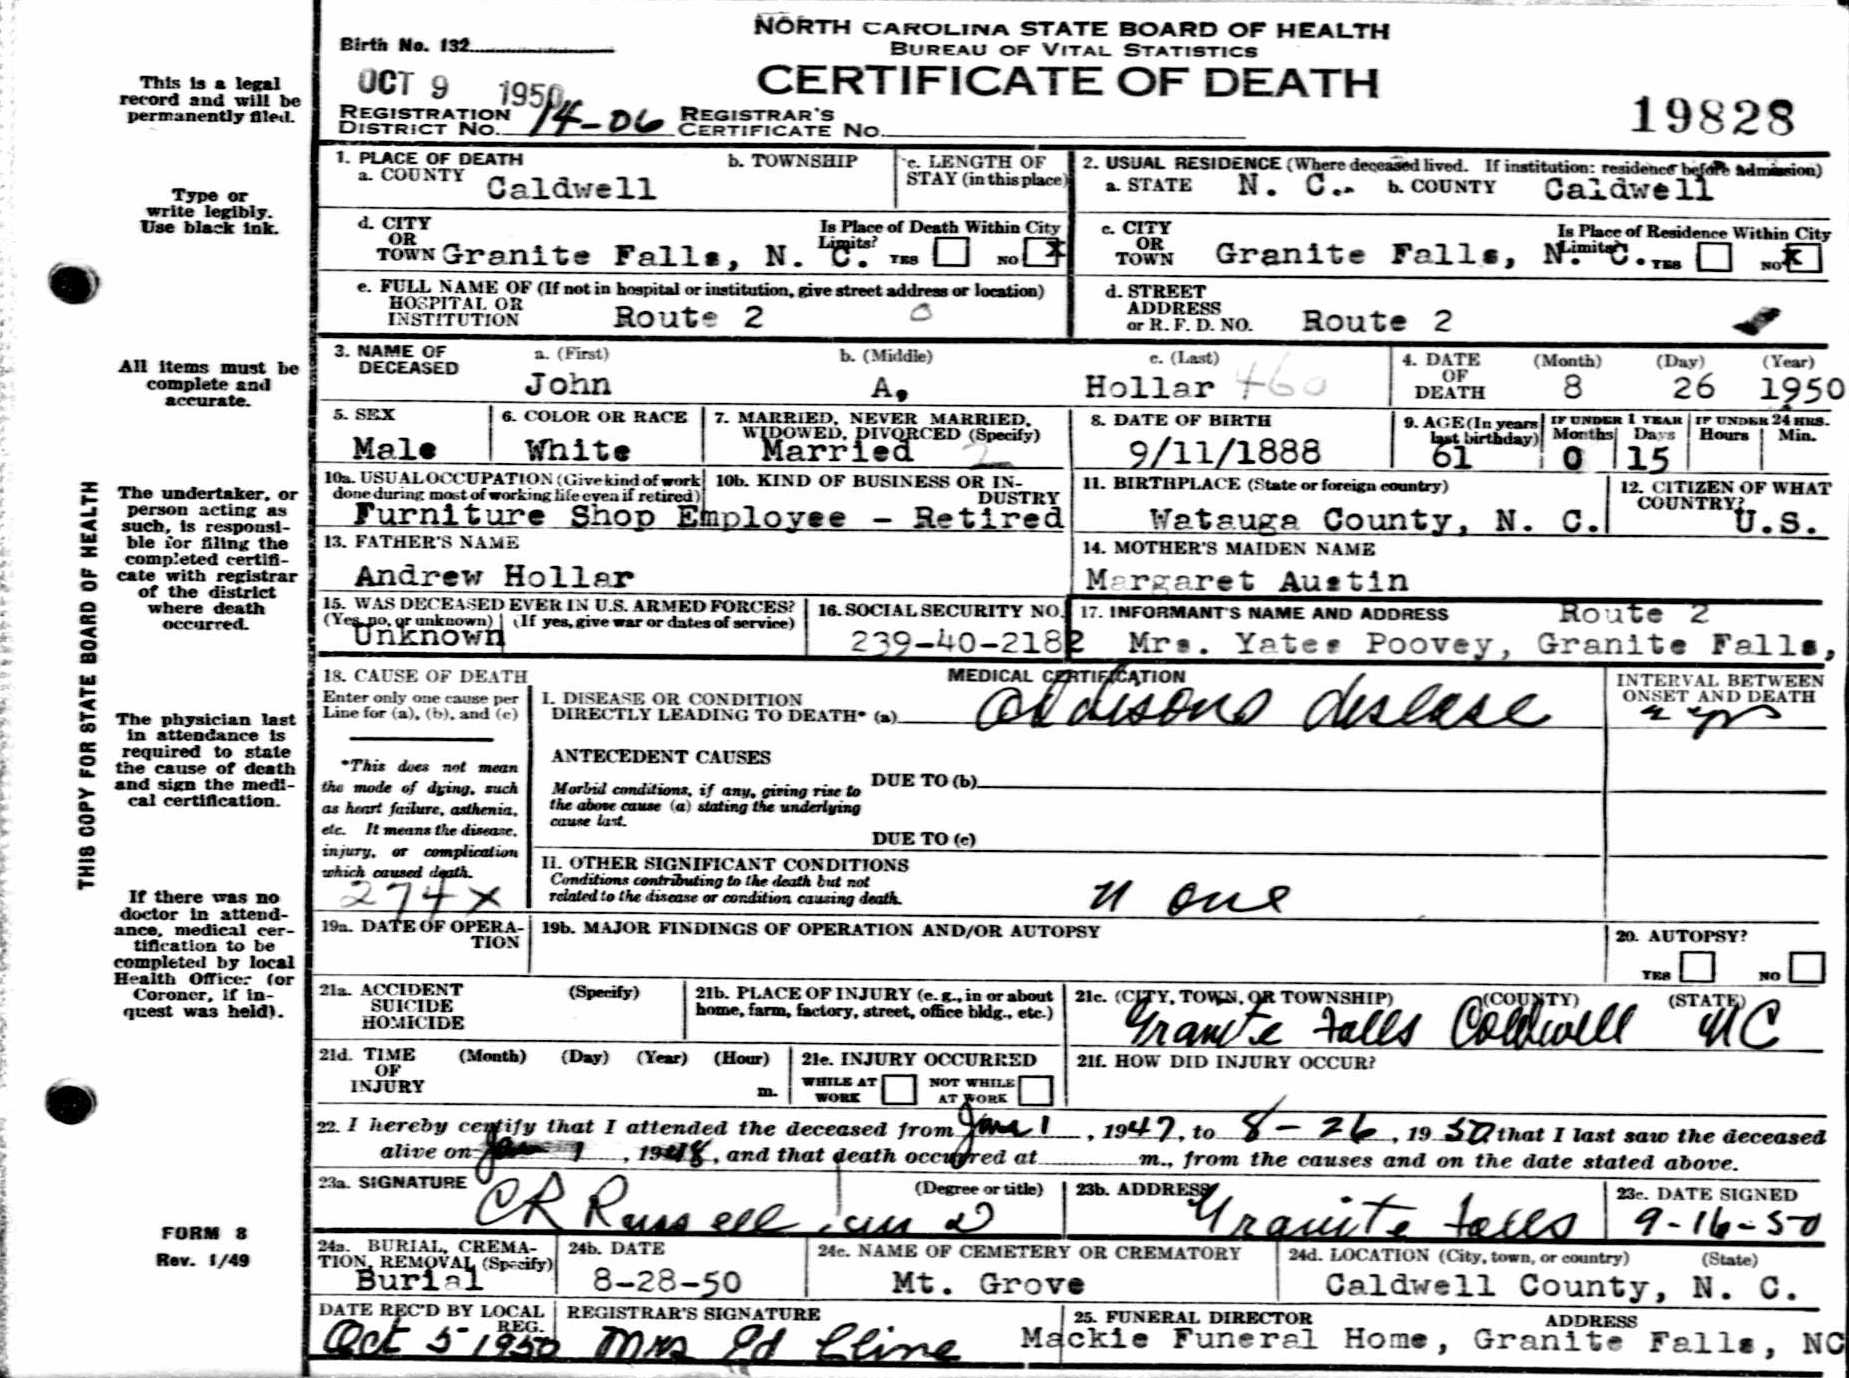 NORTH CAROLINA STATE BOARD OF HEALTH
BUREAU OF VITAL STATISTICS
CERTIFICATE OF DEATH
Birth No. 132
OCT 9 1950
REGISTRATION DISTRICT No. 14-06 REGISTRAR'S CERTIFICATE No.
19828
This is a legal
record and will be
permanently filed.
Type or
write legibly.
Use black ink.
All items must be
complete and
accurate.
The undertaker, or
person acting as
such, is responsi-
ble for filing the
completed certifi-
cate with registrar
of the district
where death
occurred.
The physician last
in attendance is
required to state
the cause of death
and sign the medi-
cal certification.
If there was no
doctor in attend-
ance, medical cer-
tification to be
completed by local
Health Officer (or
Coroner, if in-
quest was held).
FORM 8
Rev. 1/49
THIS COPY FOR STATE BOARD OF HEALTH
1. PLACE OF DEATH
a. COUNTY Caldwell
b. TOWNSHIP
c. LENGTH OF
STAY (in this place)
2. USUAL RESIDENCE (Where deceased lived. If institution: residence before admission)
a. STATE N. C. b. COUNTY Caldwell
d. CITY
OR
TOWN Granite Falls, N. C.
Is Place of Death Within City
Limits? YES NO X
c. CITY
OR
TOWN Granite Falls, N. C.
Is Place of Residence Within City
Limits? YES NO X
e. FULL NAME OF (If not in hospital or institution, give street address or location)
HOSPITAL OR
INSTITUTION Route 2 0
d. STREET
ADDRESS
or R. F. D. NO. Route 2
3. NAME OF
DECEASED
a. (First) b. (Middle) c. (Last)
John A. Hollar 460
4. DATE
OF
DEATH
(Month) (Day) (Year)
8 26 1950
5. SEX
Male
6. COLOR OR RACE
White
7. MARRIED, NEVER MARRIED,
WIDOWED, DIVORCED (Specify)
Married 2
8. DATE OF BIRTH
9/11/1888
9. AGE (In years
last birthday)
61
IF UNDER 1 YEAR
Months Days
0 15
IF UNDER 24 HRS.
Hours Min.
10a. USUAL OCCUPATION (Give kind of work
done during most of working life even if retired)
10b. KIND OF BUSINESS OR IN-
DUSTRY
Furniture Shop Employee - Retired
11. BIRTHPLACE (State or foreign country)
Watauga County, N. C.
12. CITIZEN OF WHAT
COUNTRY?
U.S.
13. FATHER'S NAME
Andrew Hollar
14. MOTHER'S MAIDEN NAME
Margaret Austin
15. WAS DECEASED EVER IN U.S. ARMED FORCES?
(Yes, no, or unknown) (If yes, give war or dates of service)
Unknown
16. SOCIAL SECURITY NO.
239-40-2182
17. INFORMANT'S NAME AND ADDRESS Route 2
Mrs. Yates Poovey, Granite Falls,
18. CAUSE OF DEATH
Enter only one cause per
Line for (a), (b), and (c)
*This does not mean
the mode of dying, such
as heart failure, asthenia,
etc. It means the disease,
injury, or complication
which caused death.
274X
MEDICAL CERTIFICATION
I. DISEASE OR CONDITION
DIRECTLY LEADING TO DEATH* (a) Addisons disease
INTERVAL BETWEEN
ONSET AND DEATH
yrs
ANTECEDENT CAUSES
Morbid conditions, if any, giving rise to
the above cause (a) stating the underlying
cause last.
DUE TO (b)
DUE TO (c)
II. OTHER SIGNIFICANT CONDITIONS
Conditions contributing to the death but not
related to the disease or condition causing death.
None
19a. DATE OF OPERA-
TION
19b. MAJOR FINDINGS OF OPERATION AND/OR AUTOPSY
20. AUTOPSY?
YES NO
21a. ACCIDENT
SUICIDE
HOMICIDE
(Specify)
21b. PLACE OF INJURY (e. g., in or about
home, farm, factory, street, office bldg., etc.)
21c. (CITY, TOWN, OR TOWNSHIP) (COUNTY) (STATE)
Granite Falls Caldwell NC
21d. TIME
OF
INJURY
(Month) (Day) (Year) (Hour)
m.
21e. INJURY OCCURRED
WHILE AT
WORK
NOT WHILE
AT WORK
21f. HOW DID INJURY OCCUR?
22. I hereby certify that I attended the deceased from Jan 1, 1947, to 8-26, 1950 that I last saw the deceased
alive on Jan 1, 1948, and that death occurred at m., from the causes and on the date stated above.
23a. SIGNATURE (Degree or title)
CR Russell M D
23b. ADDRESS
Granite Falls
23c. DATE SIGNED
9-16-50
24a. BURIAL, CREMA-
TION, REMOVAL (Specify)
Burial
24b. DATE
8-28-50
24c. NAME OF CEMETERY OR CREMATORY
Mt. Grove
24d. LOCATION (City, town, or county) (State)
Caldwell County, N. C.
DATE REC'D BY LOCAL
REG.
Oct 5 1950
REGISTRAR'S SIGNATURE
Mrs Ed Cline
25. FUNERAL DIRECTOR ADDRESS
Mackie Funeral Home, Granite Falls, NC